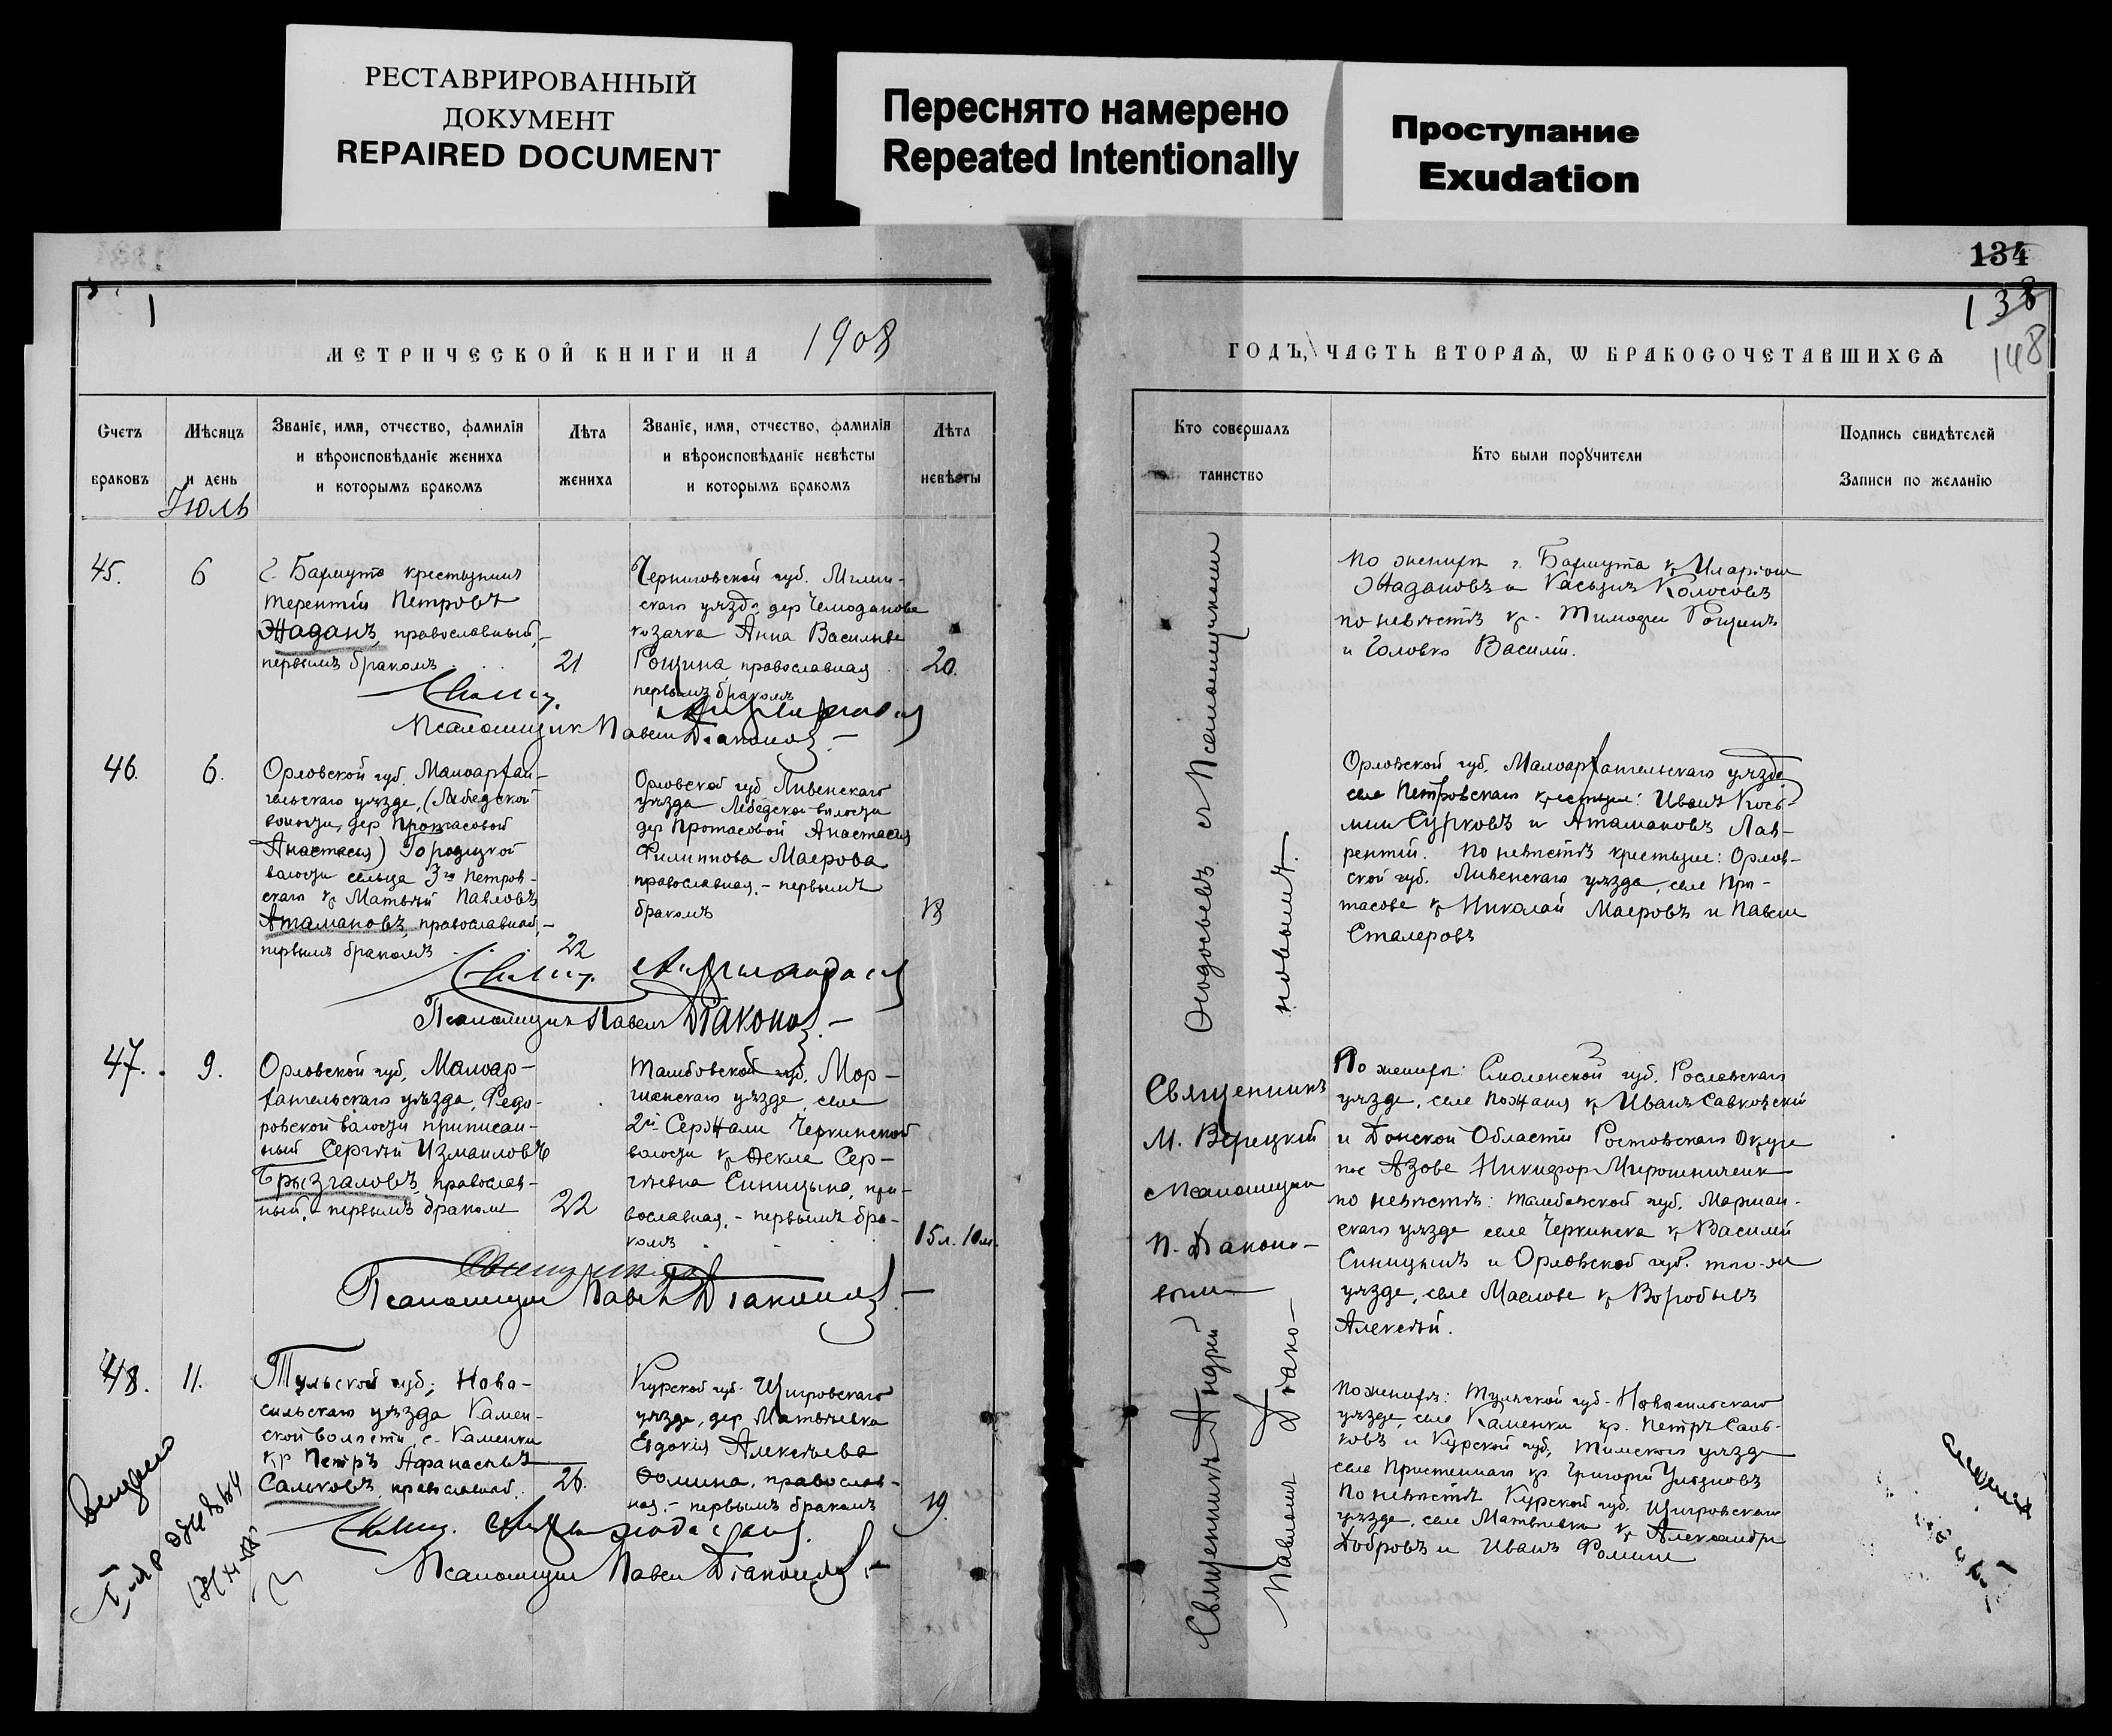 РЕСТАВРИРОВАННЫЙ
ДОКУМЕНТ
REPAIRED DOCUMENT
Переснято намерено
Repeated Intentionally
Проступание
Exudation
МЕТРИЧЕСКОЙ КНИГИ НА 1908
Счетъ
браковъ
Мѣсяцъ
и день
Званіе, имя, отчество, фамилія
и вѣроисповѣданіе жениха
и которымъ бракомъ
Лѣта
жениха
Званіе, имя, отчество, фамилія
и вѣроисповѣданіе невѣсты
и которымъ бракомъ
Лѣта
невѣсты
Іюль
45.
6
г. Бахмута крестьянинъ
Терентій Петровъ
Жаданъ, православный,
первымъ бракомъ
21
Черниговской губ. Мглин-
скаго уѣзда дер Чемоданова
козачка Анна Васильева
Рощина, православная
первымъ бракомъ
20.
Псаломщик Павелъ Діаконов
46.
6.
Орловской губ. Малоархан-
гельскаго уѣзда, (Лебедской
волости, дер Протасовой
Анастасія) Городецкой
волости сельца 3го Петров-
скаго кр Матвѣй Павловъ
Атамановъ, православный,
первымъ бракомъ
22
Орловской губ Ливенскаго
уѣзда Лебедской волости
дер Протасовой Анастасія
Филиппова Маерова
православная, - первымъ
бракомъ
18
Псаломщикъ Павелъ Діаконов
47.
9.
Орловской губ, Малоар-
хангельскаго уѣзда, Федо-
ровской волости приписан-
ный Сергѣй Измаиловъ
Брызгаловъ, православ-
ный, - первымъ бракомъ
22
Тамбовской губ. Мор-
шанскаго уѣзда, села
2й Сержали Черкинской
волости кр Ѳекла Сер-
гѣевна Синицына, пра-
вославная, - первымъ бра-
комъ
15 л. 10 м.
Псаломщикъ Павелъ Діаконов
48.
11.
Тульской губ; Ново-
сильскаго уѣзда Камен-
ской волости с. Каменки
кр Петръ Афанасьевъ
Сальковъ, православный.
26.
Курской губ. Щигровскаго
уѣзда, дер Матвѣевка
Евдокія Алексѣева
Ѳомина, православ-
ная, - первымъ бракомъ
19.
Псаломщикъ Павел Діаконов
134
138
148
ГОДЪ, ЧАСТЬ ВТОРАЯ, Ѡ БРАКОСОЧЕТАВШИХСЯ
Кто совершалъ
таинство
Кто были порꙋчители
Подпись свидѣтелей
Записи по желанію
Священникъ
М. Верецкій
с Псаломщикомъ
П. Діаконо-
вымъ
Священникъ Андрей
Ѳеодосьевъ съ Псаломщикомъ
Павломъ Діако-
новымъ.
По женихѣ г. Бахмута кр Иларіонъ
Жадановъ и Касьянъ Колосовъ
по невѣстѣ кр. Тимофей Рощинъ
и Головко Василій.
Орловской губ, Малоархангельскаго уѣзда
села Петровскаго крестьяне: Иванъ Кось-
минъ Сурковъ и Атамановъ Лав-
рентій. По невѣстѣ крестьяне: Орлов-
ской губ. Ливенскаго уѣзда, села Про-
тасова кр Николай Маеровъ и Павелъ
Сталеровъ
По женихѣ: Смоленской губ. Рославскаго
уѣзда, села кр Иванъ Савковскій
и Донской Области Ростовскаго Округа
пос Азова Никифоръ Мирошниченк
по невѣстѣ: Тамбовской губ. Моршан-
скаго уѣзда села Черкинска кр Василій
Синицынъ и Орловской губ.
уѣзда, села Маслова кр Воробьевъ
Алексѣй.
По женихѣ: Тульской губ. Новосильскаго
уѣзда, села Каменки кр. Петръ Саль-
ковъ и Курской губ, Тимскаго уѣзда
села Пристеннаго кр. Григорій
По невѣстѣ Курской губ, Щигровскаго
уѣзда, села Матвѣевки кр Александръ
Добровъ и Иванъ Фоминъ